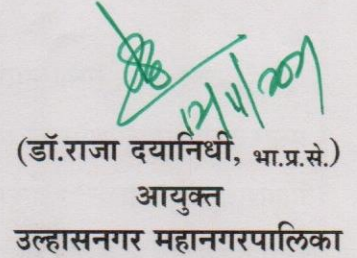 (डॉ.राजा दयानिधी, भा.प्र.से.)
आयुक्त
उल्हासनगर महानगरपालिका